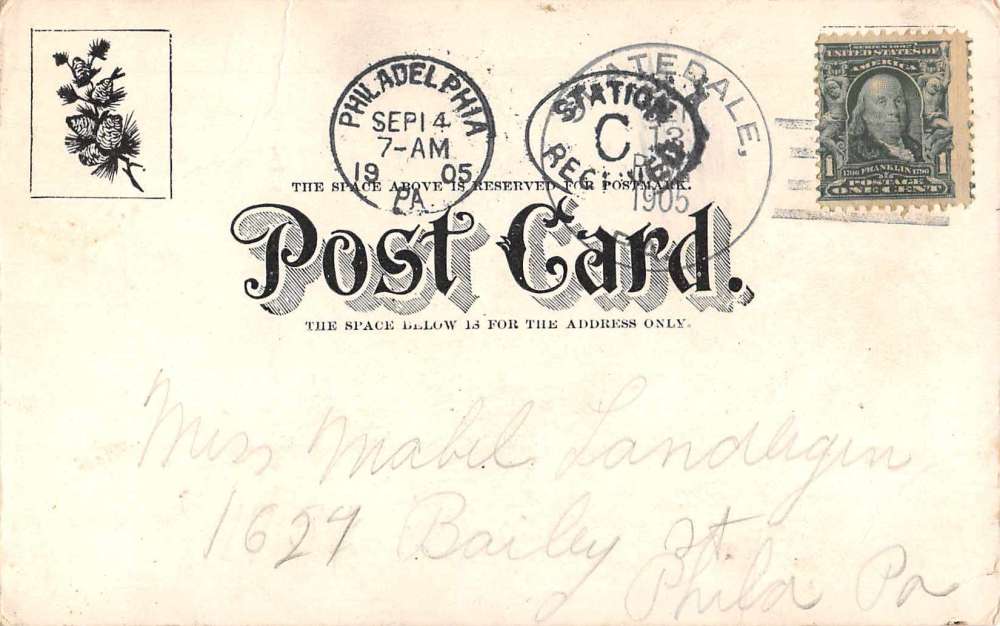 PHILADELPHIA
SEP 14
7-AM
1905
PA
STATION
C
REC'D
ATEDALE,
13
1905
SERIES 1902
UNITED STATES OF
AMERICA
1 1706 FRANKLIN 1790 1
POSTAGE
ONE CENT
THE SPACE ABOVE IS RESERVED FOR POSTMARK.
Post Card.
THE SPACE BELOW IS FOR THE ADDRESS ONLY.
Miss Mabel Landugin
1627 Bailey St.
Phila Pa